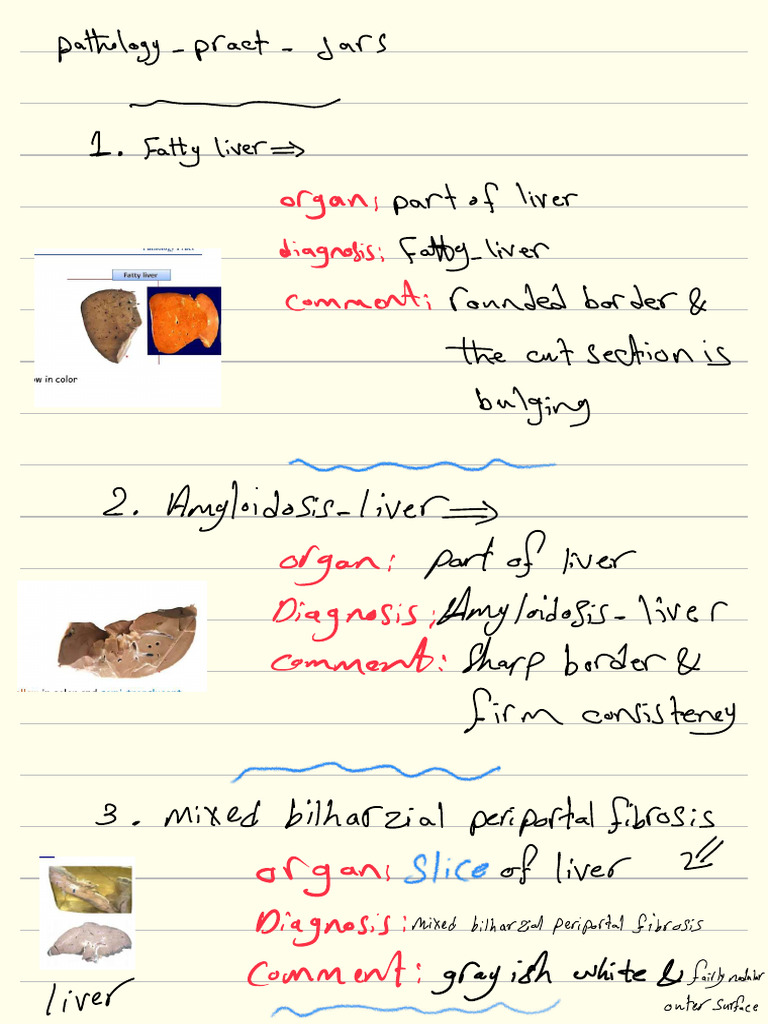 pathology - pract - Jars
1. Fatty liver ⇒
organ; part of liver
diagnosis; Fatty - liver
Fatty liver
comment; rounded border &
the cut section is
bulging
ow in color
2. Amyloidosis - liver ⇒
organ: part of liver
Diagnosis; Amyloidosis - liver
comment: Sharp border &
firm consisteney
3. mixed bilharzial periportal fibrosis
organ; Slice of liver
Diagnosis: mixed bilharzial periportal fibrosis
Comment: grayish white & fairly nodular
outer surface
liver